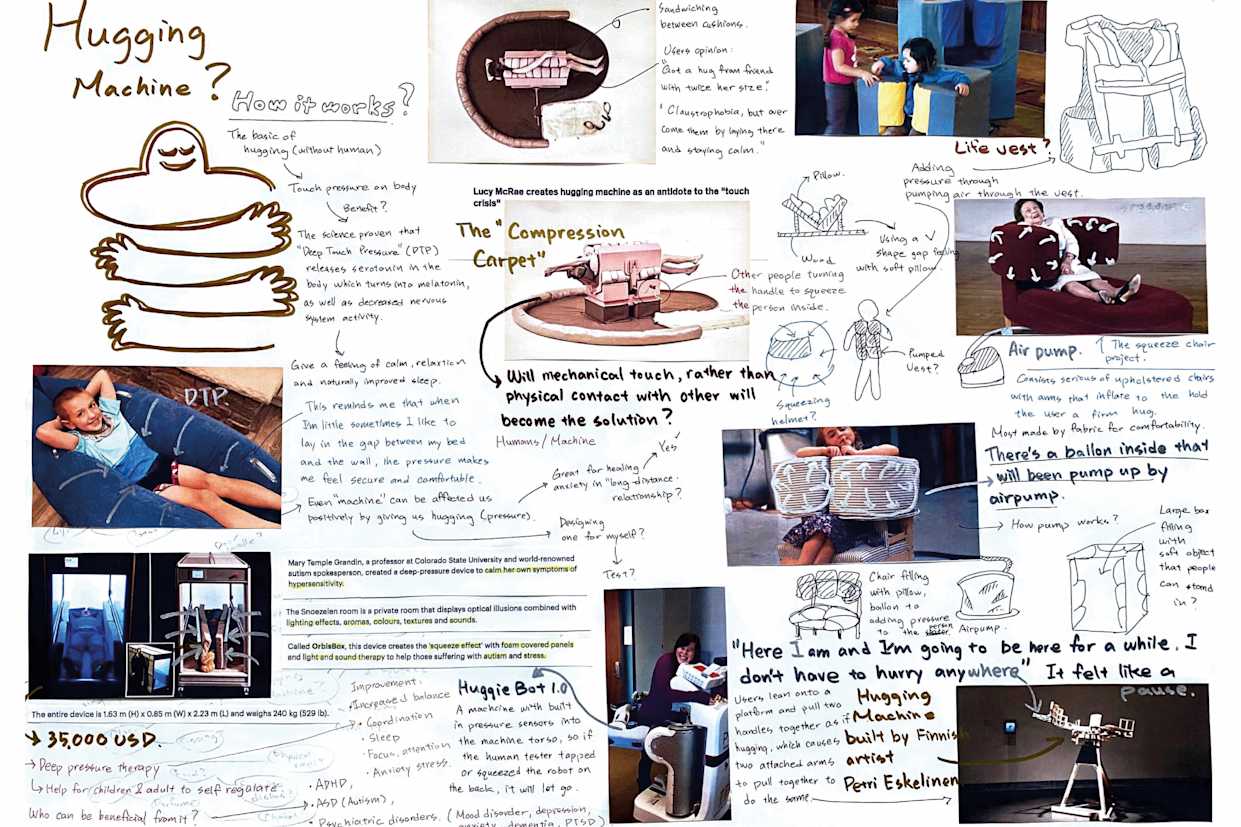 Hugging
Machine?
How it works?
The basic of
hugging (without human)
Touch pressure on body
Benefit?
The science proven that
"Deep Touch Pressure" (DTP)
releases serotonin in the
body which turns into melatonin,
as well as decreased nervous
system activity.
Give a feeling of calm, relaxtion
and naturally improved sleep.
This reminds me that when
I'm little sometimes I like to
lay in the gap between my bed
and the wall, the pressure makes
me feel secure and comfortable.
Even "machine" can be affected us
positively by giving us hugging (pressure).
DTP
Sandwiching
between cushions.
Users opinion:
"Got a hug from friend
with twice her size."
"Claustrophobia, but over
come them by laying there
and staying calm."
Lucy McRae creates hugging machine as an antidote to the "touch
crisis"
The "Compression
Carpet"
Other people turning
the handle to squeeze
the person inside.
Will mechanical touch, rather than
physical contact with other will
become the solution?
Humans/Machine
Yes
Great for healing
anxiety in "long-distance
relationship?
Designing
one for myself?
Test?
Life vest?
Adding
pressure through
pumping air through the vest.
Pillow.
Wood
Using a V
shape gap feeling
with soft pillow.
Squeezing
helmet?
Pumped
Vest?
Air pump.
The squeeze chair
project.
Consists serious of upholstered chairs
with arms that inflate to the hold
the user a firm hug.
Most made by fabric for comfortability.
There's a ballon inside that
will been pump up by
airpump.
How pump works?
Large box
filling
with
soft object
that people
can stand
in?
Chair filling
with pillow,
ballon to
adding pressure
to the person
Airpump.
Mary Temple Grandin, a professor at Colorado State University and world-renowned
autism spokesperson, created a deep-pressure device to calm her own symptoms of
hypersensitivity.
The Snoezelen room is a private room that displays optical illusions combined with
lighting effects, aromas, colours, textures and sounds.
Called OrbisBox, this device creates the 'squeeze effect' with foam covered panels
and light and sound therapy to help those suffering with autism and stress.
The entire device is 1.63 m (H) x 0.85 m (W) x 2.23 m (L) and weighs 240 kg (529 lb).
35,000 USD.
Deep pressure therapy
Help for children & adult to self regulate
Who can be beneficial from it?
Improvement:
Increased balance
Coordination
Sleep
Focus, attention
Anxiety stress.
ADHD,
ASD (Autism),
Psychiatric disorders. (Mood disorder, depression,
anxiety, dementia, PTSD)
Huggie Bot 1.0
A machine with built
in pressure sensors into
the machine torso, so if
the human tester tapped
or squeezed the robot on
the back, it will let go.
"Here I am and I'm going to be here for a while, I
don't have to hurry anywhere" It felt like a
pause.
Users lean onto a
platform and pull two
handles together as if
hugging, which causes
two attached arms
to pull together to
do the same.
Hugging
Machine
built by Finnish
artist
Petri Eskelinen